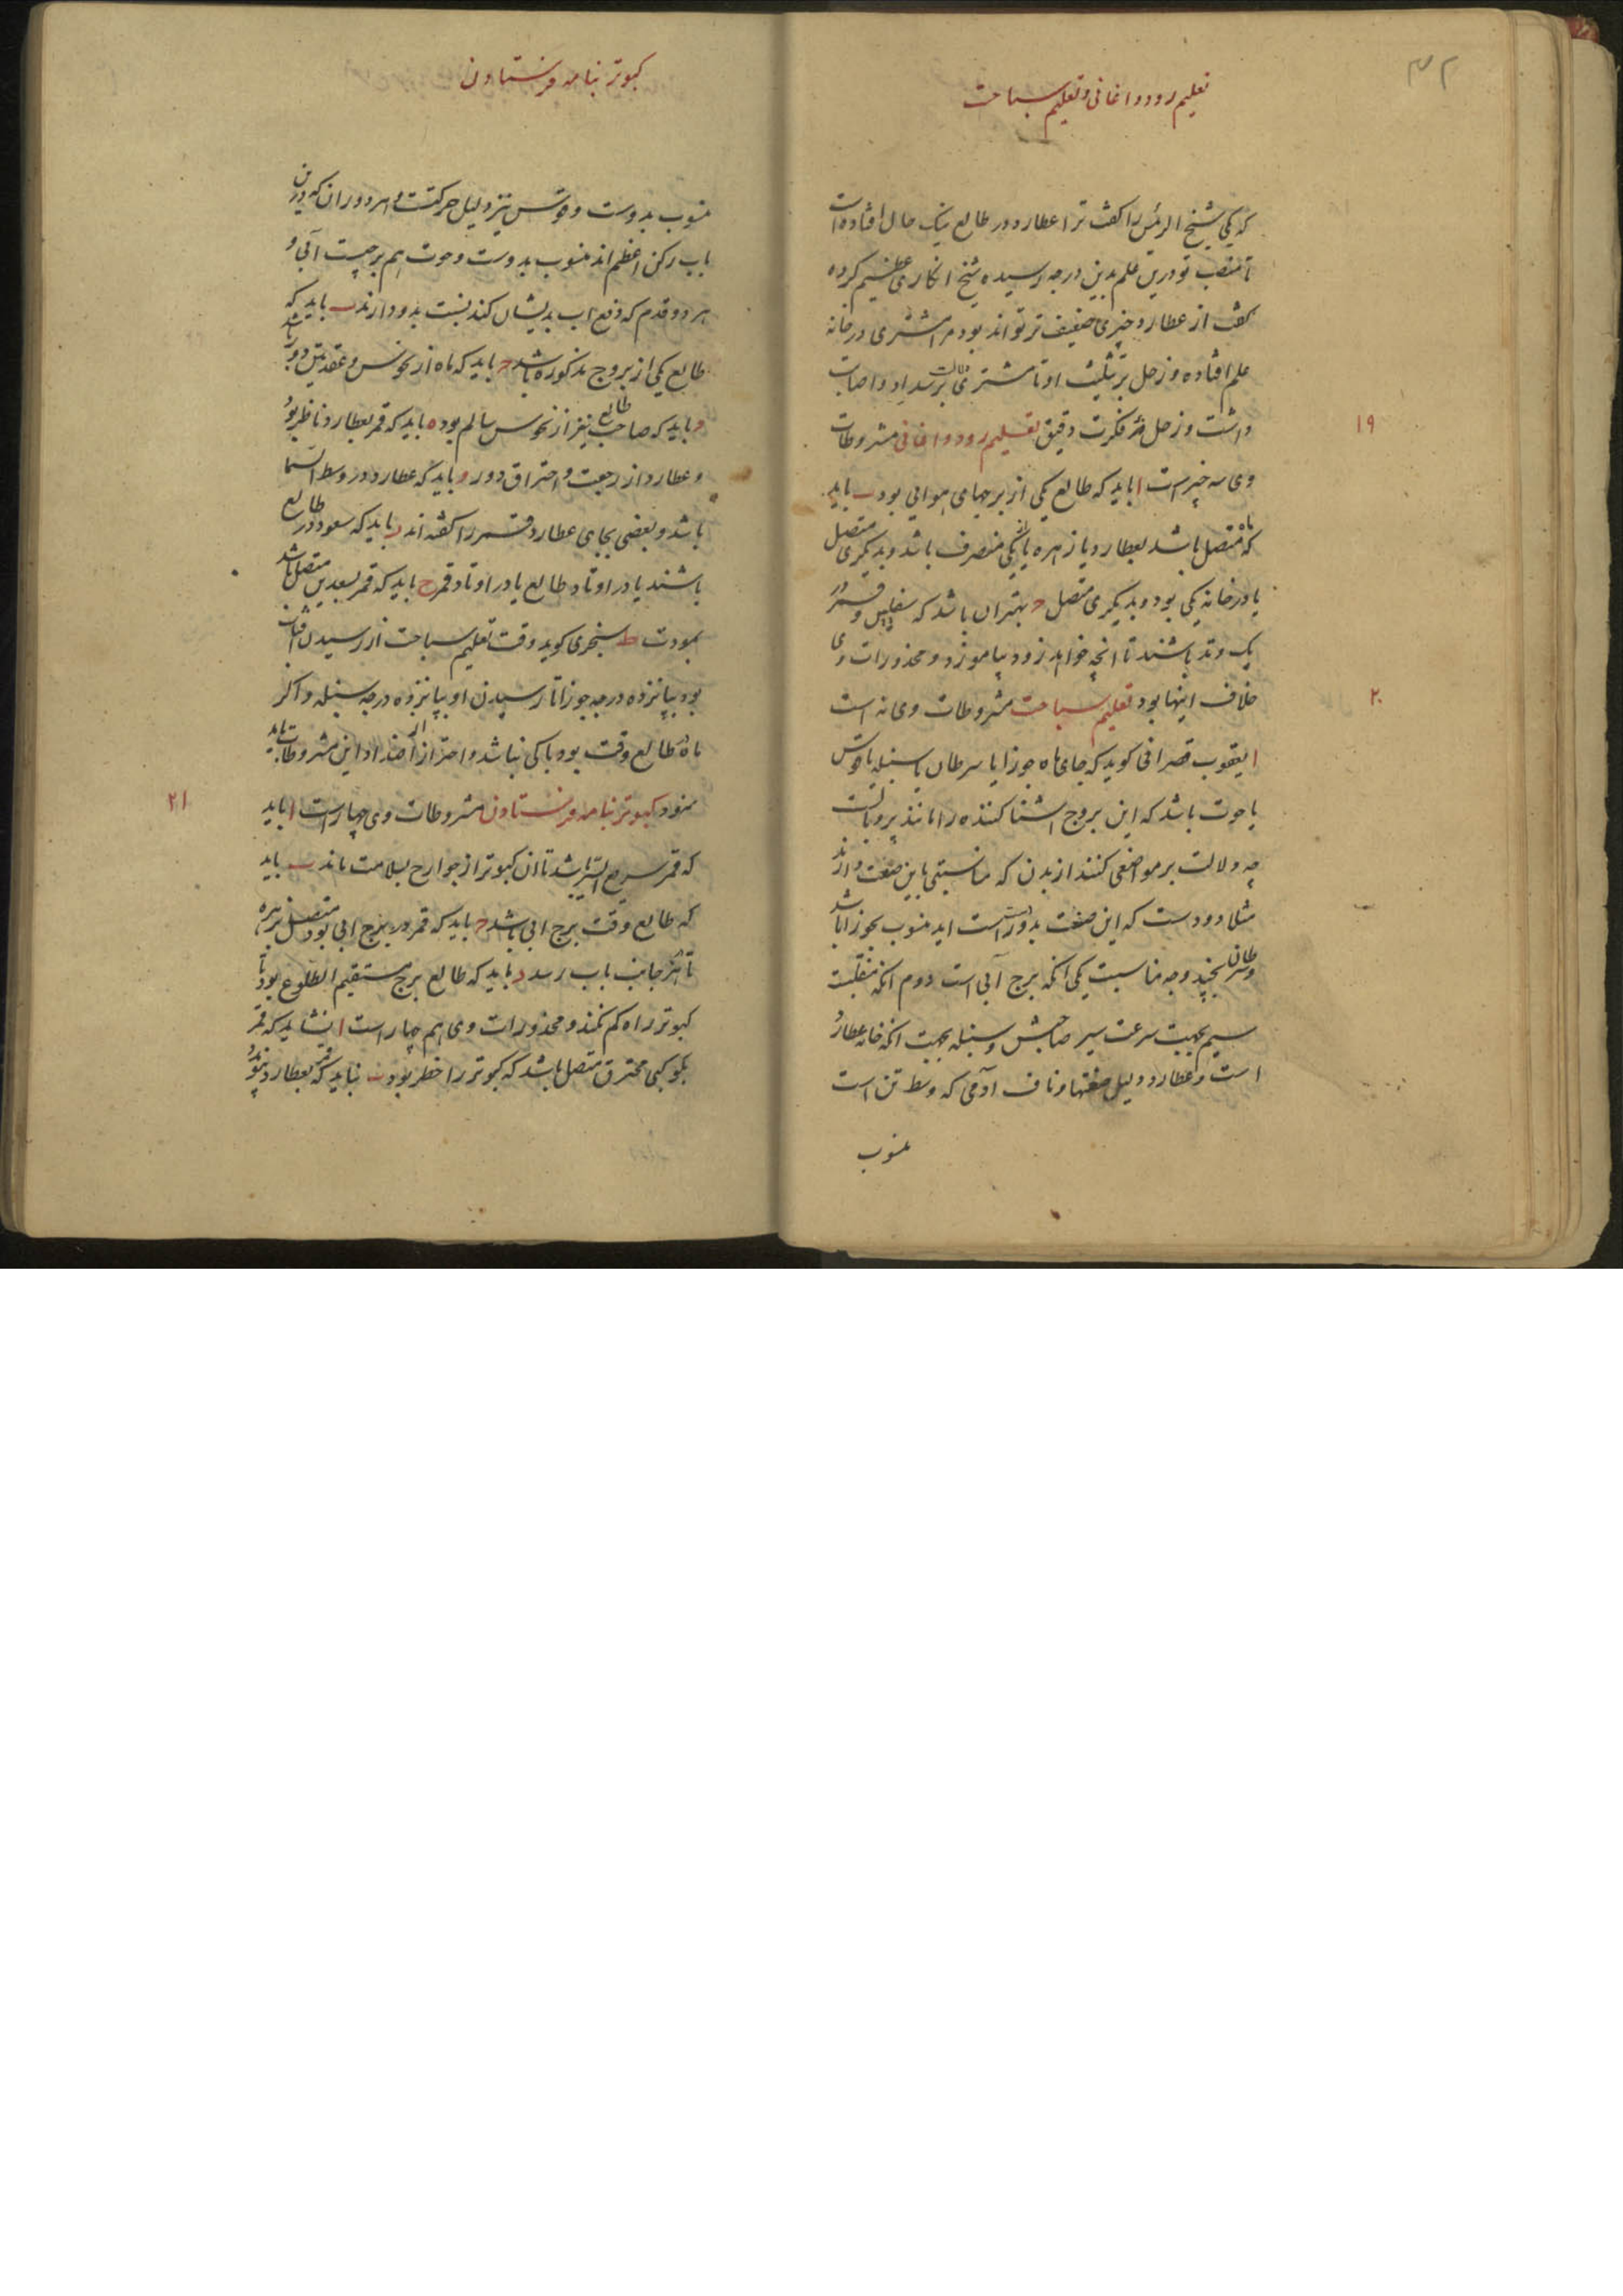 ۳۲
تعلیم رود و اغانی و تعلیم سباحت
که یکی شیخ الرئیس را گفت ترا عطارد در طالع نیک حال افتاده است
تا منصب تو درین علم بدین درجه رسیده شیخ انکاری عظیم کرده
گفت از عطارد چیزی ضعیف تر تواند بود مرا مشتری در خانه
علم افتاده و زحل بر تثلیث او تا مشتری سداد و اصابت
داشت و زحل فکرت دقیق تعلیم رود و اغانی مشروطات
۱۹
وی سه چیزست ا باید که طالع یکی از برجهای هوایی بود ب باید
که ماه متصل باشد بعطارد یا زهره یا از یکی منصرف باشد و بدیگری متصل
یا در خانه یکی بود و بدیگری متصل ج بهتر ان باشد که و قمر در
یک وتد باشند تا انچه خواهد زود بیاموزد و محذورات وی
خلاف اینها بود تعلیم سباحت مشروطات وی نه است
۲۰
ا یعقوب قصرانی کوید که جای ماه جوزا یا سرطان یا سنبله یا قوس
یا حوت باشد که این بروج اشنا کننده را مانند پر و بالست
چه دلالت بر مواضعی کنند از بدن که مناسبتی باین صنعت دارند
مثلا دو دست که این صنعت بدو راست اید منسوب بجوزا باشد
و سرطان بچند وجه مناسبت یکی انکه برج آبی است دوم انکه منقلبست
سیم بجهت سرعت سیر صاحبش و سنبله بجهت انکه خانه عطارد
است و عطارد دلیل صنعتها و ناف آدمی که وسط تن است
منسوب
کبوتر بنامه فرستادن
منسوب بدوست و قوس نیز دلیل حرکتست و هر دو ران که درین
باب رکن اعظم اند منسوب بدوست و حوت هم برجیست آبی و
هر دو قدم که دفع اب بدیشان کنند نسبت بدو دارند ب باید که
طالع یکی از بروج مذکوره باشد ج باید که ماه از نحوس و عقدتین دور باشد
د باید که صاحب طالع نیز از نحوس سالم بود ه باید که قمر بعطارد ناظر بود
و عطارد از رجعت و احتراق دور و باید که عطارد در وسط السما
باشد و بعضی بجای عطارد قمر را گفته اند ز باید که سعود در طالع
باشند یا در اوتاد طالع یا در اوتاد قمر ح باید که قمر بسعدین متصل باشد
بمودت ط سنجری کوید وقت تعلیم سباحت از رسیدن افتاب
بود بپانزده درجه جوزا تا رسیدن او بپانزده درجه سنبله و اکر
ماه در طالع وقت بود باکی نباشد و احتراز از اضداد این مشروطات باید
نمود کبوتر بنامه فرستادن مشروطات وی چهار است ا باید
۲۱
که قمر سریع السیر باشد تا ان کبوتر از جوارح بسلامت ماند ب باید
که طالع وقت برج ابی باشد ج باید که قمر در برج ابی بود متصل بزهره
تا از جانب باب رسد د باید که طالع برج مستقیم الطلوع بود تا
کبوتر راه کم نکند و محذورات وی هم چهار است ا نشاید که قمر
بکوکبی محترق متصل باشد که کبوتر را خطر بود ب نباید که قمر بعطارد